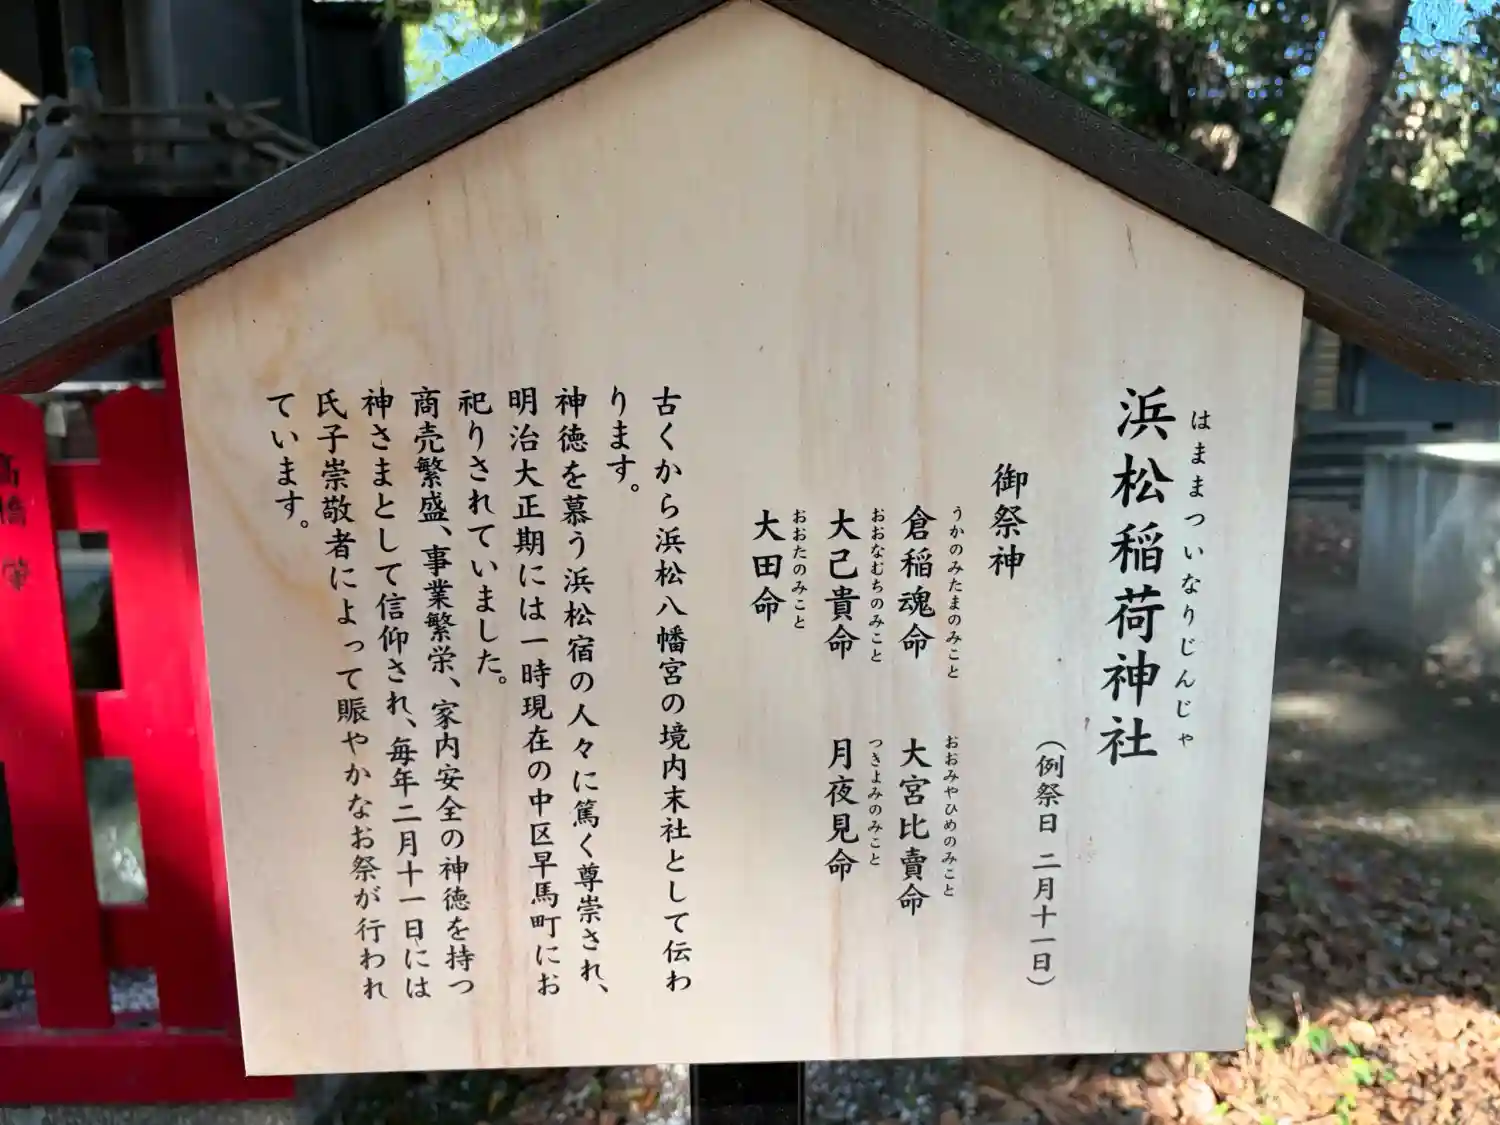 浜松稲荷神社
はままついなりじんじゃ
（例祭日 二月十一日）
御祭神
倉稲魂命
うかのみたまのみこと
大宮比賣命
おおみやひめのみこと
大己貴命
おおなむちのみこと
月夜見命
つきよみのみこと
大田命
おおたのみこと
古くから浜松八幡宮の境内末社として伝わ
ります。
神徳を慕う浜松宿の人々に篤く尊崇され、
明治大正期には一時現在の中区早馬町にお
祀りされていました。
商売繁盛、事業繁栄、家内安全の神徳を持つ
神さまとして信仰され、毎年二月十一日には
氏子崇敬者によって賑やかなお祭が行われ
ています。